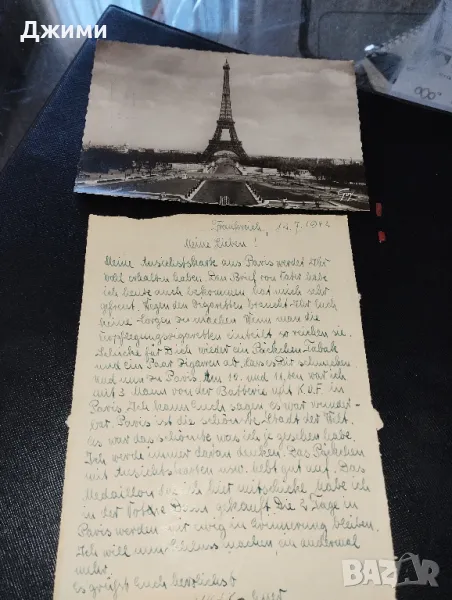 Джими
Frankreich, 14.7.1942
Meine Lieben!
Meine Ansichtskarte aus Paris werdet Ihr
wohl erhalten haben. Den Brief von habe
ich heute auch bekommen hat mich sehr
gefreut. Wegen den Zigaretten braucht Ihr Euch
keine Sorgen zu machen Wenn man die
Verpflegungszigaretten einteilt so reichen sie.
für Dich wieder ein Päckchen Tabak
und ein Paar Zigarren ab, lass es Dir schmecken
Und nun zu Paris. Am 10. und 11. war ich
mit 3 Mann von der Batterie mit K.d.F. in
Paris. Ich kann Euch sagen es war wunder-
bar. Paris ist die schönste Stadt der Welt.
Es war das schönste was ich je gesehen habe.
Ich werde immer daran denken. Das Päckchen
mit Ansichtskarten usw. hebt gut auf. Das
Medaillon das ich hier mitschicke habe ich
in der Notre Dame gekauft Die 2 Tage in
Paris werden mir ewig in Erinnerung bleiben.
Ich will nun Schluss machen, ein andermal
mehr.
Es grüßt Euch herzlichst
BAZAR